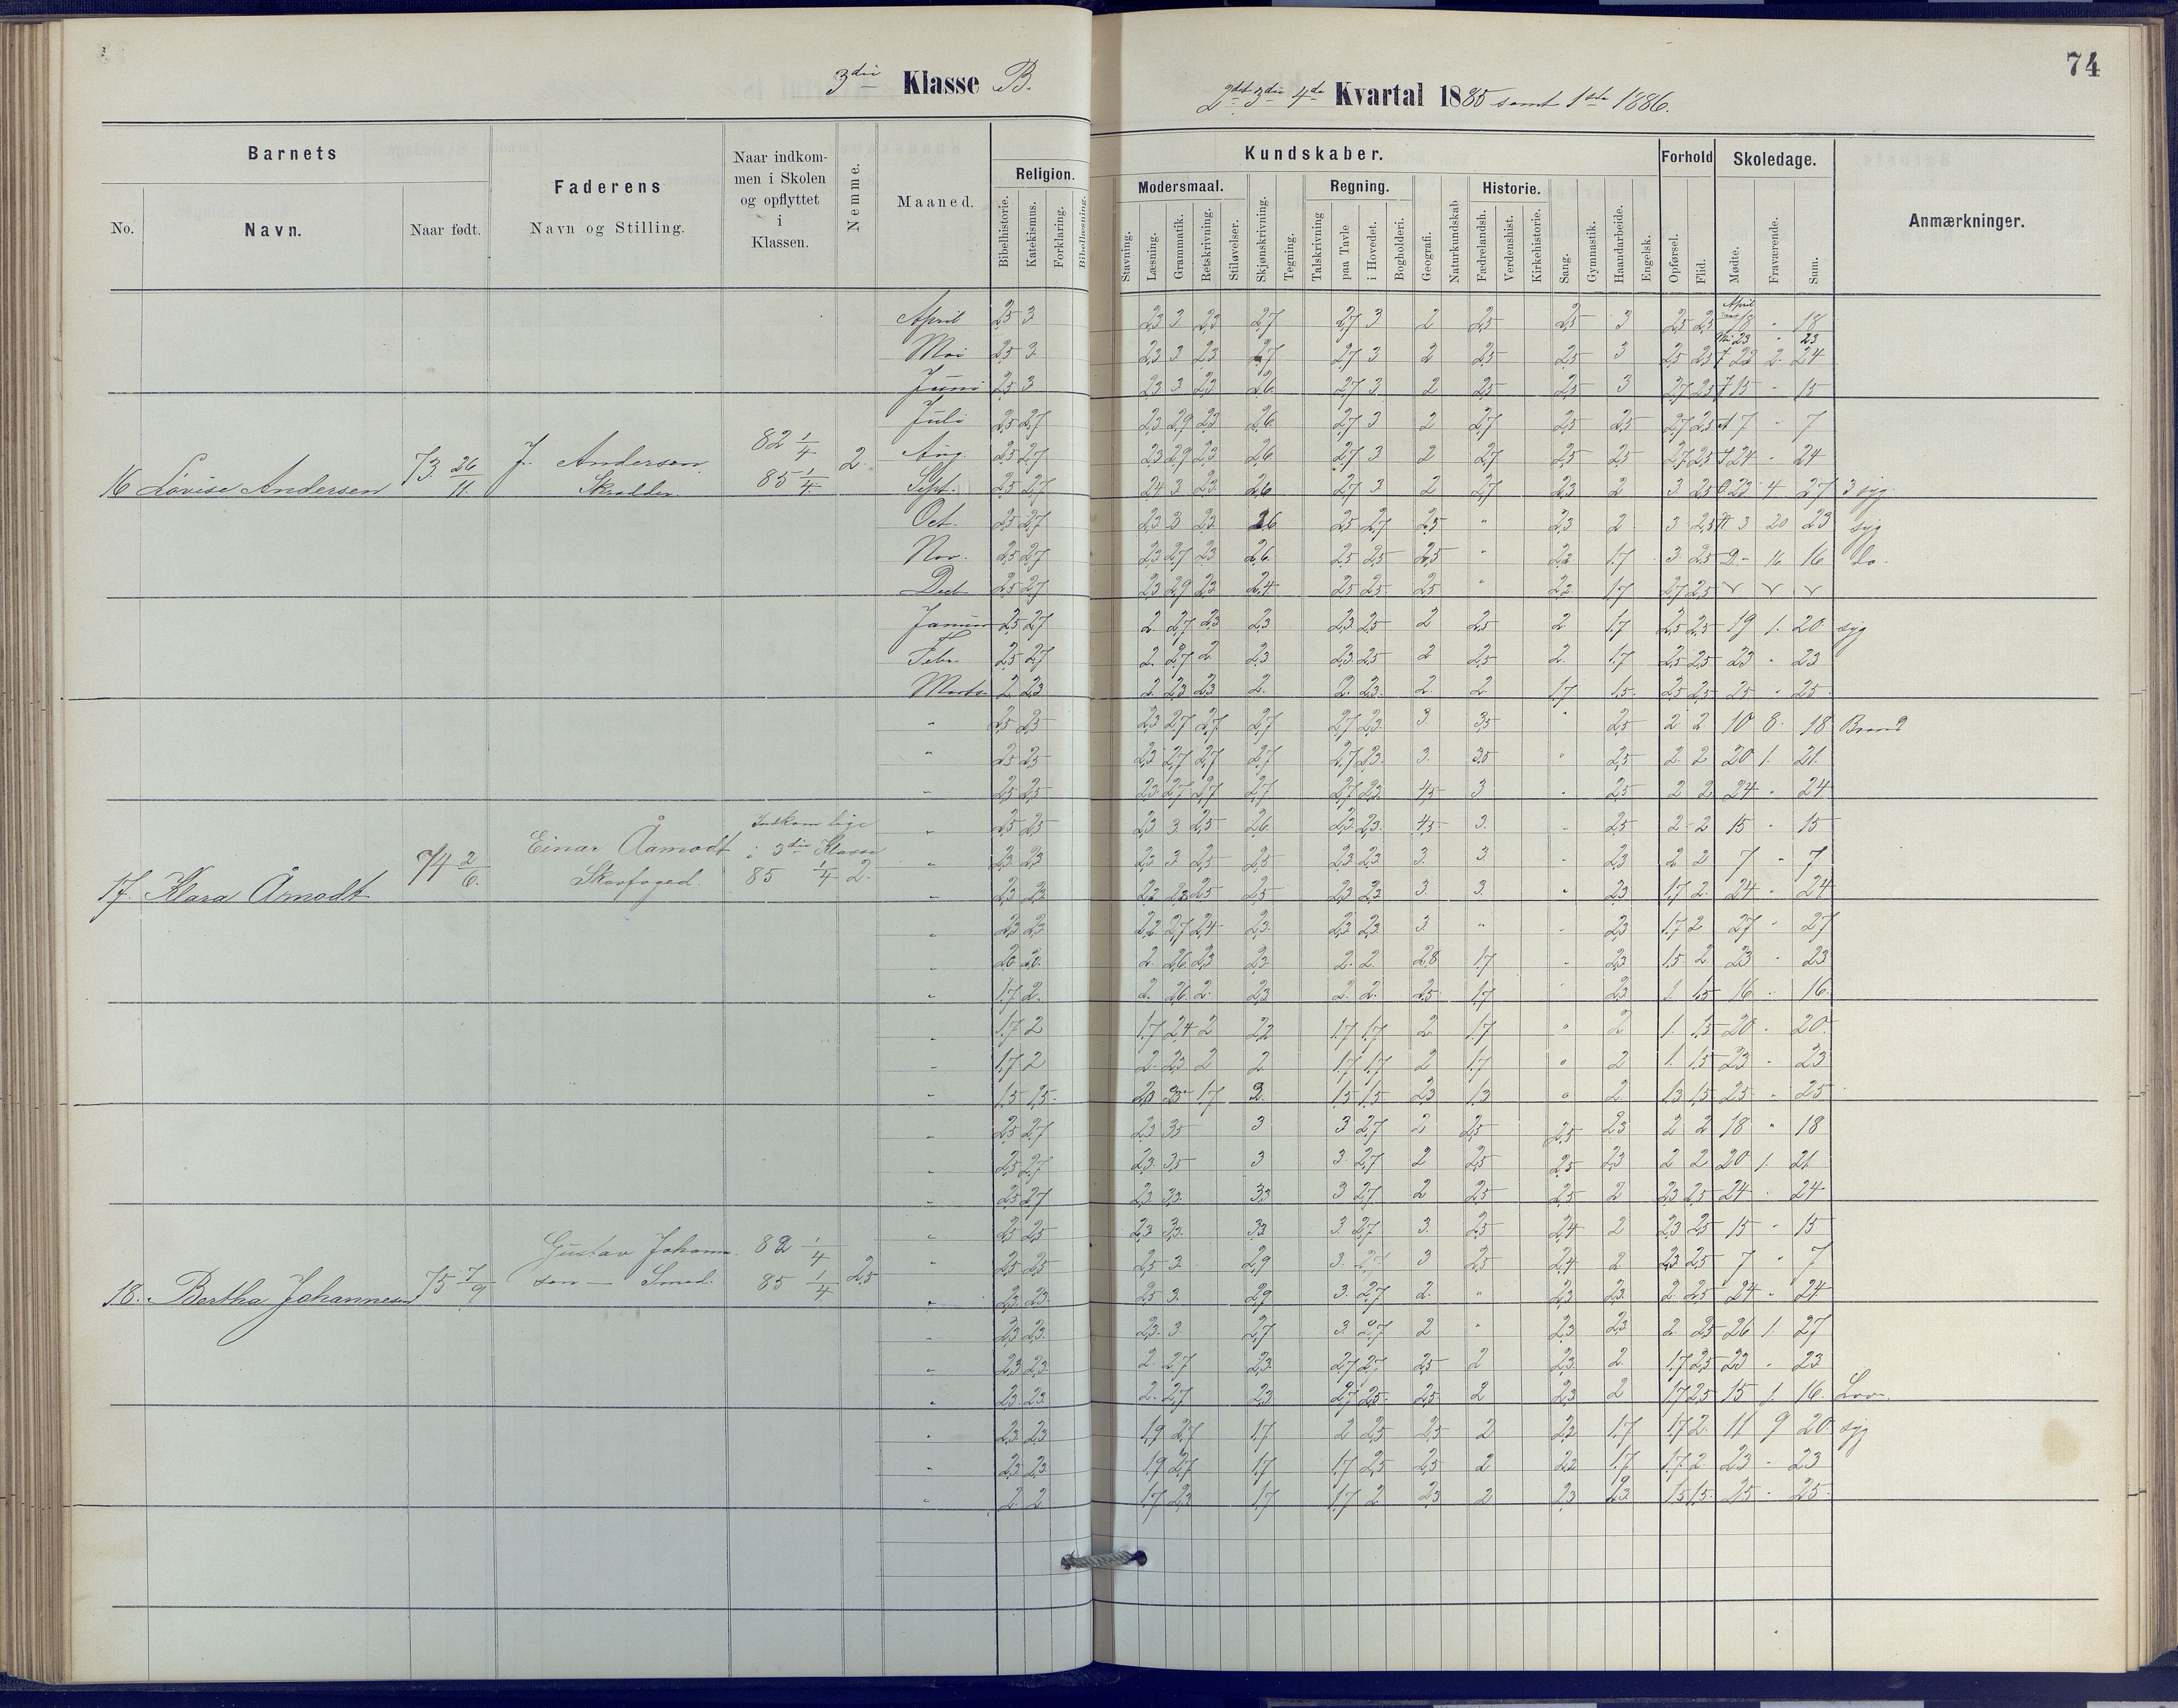 74
3die Klasse B.
2det 3die 4de Kvartal 1885 samt 1ste 1886.
Barnets
No.
Navn.
Naar født.
Faderens
Navn og Stilling.
Naar indkom-
men i Skolen
og opflyttet
i
Klassen.
Nemme.
Maaned.
Kundskaber.
Religion.
Bibelhistorie.
Katekismus.
Forklaring.
Bibellæsning.
Modersmaal.
Stavning.
Læsning.
Grammatik.
Retskrivning.
Stiløvelser.
Skjønskrivning.
Tegning.
Regning.
Talskrivning
paa Tavle
i Hovedet.
Bogholderi.
Geografi.
Naturkundskab
Historie.
Fædrelandsh.
Verdenshist.
Kirkehistorie.
Sang.
Gymnastik.
Haandarbeide.
Engelsk.
Forhold
Opførsel.
Flid.
Skoledage.
Mødte.
Fraværende.
Sum.
Anmærkninger.
16 Lovise Andersen 73 26/11. J. Andersen Skrædder 82 1/4 85 1/4 2.
April 2,5 3 2,3 3 2,3 2,7 2,7 3 2 2,5 2,5 3 2,5 2,5 April 18 " 18
Mai 2,5 3 2,3 3 2,3 2,7 2,7 3 2 2,5 2,5 3 2,5 2,5 23 " 23
22 2 24
Juni 2,5 3 2,3 3 2,3 2,6 2,7 3 2 2,5 2,5 3 2,7 2,5 15 " 15
Juli 2,5 2,7 2,3 2,9 2,3 2,6 2,7 3 2 2,7 2,5 2,5 2,7 2,5 7 " 7
Aug. 2,5 2,7 2,3 2,9 2,3 2,6 2,7 3 2 2,7 2,5 2,5 2,7 2,5 24 " 24
Sept. 2,5 2,7 2,4 3 2,3 2,6 2,7 3 2 2,7 2,3 2 3 2,5 23 4 27 3 syg.
Oct. 2,5 2,7 2,3 3 2,3 2,6 2,5 2,7 2,5 " 2,3 2 3 2,5 3 20 23 syg
Nov. 2,5 2,7 2,3 2,7 2,3 2,6 2,5 2,5 2,5 " 2,2 1,7 3 2,5 - 16 16 do.
Decb 2,5 2,7 2,3 2,9 2,3 2,4 2,5 2,5 2,5 " 2,2 1,7 2,7 2,5
Januar 2,5 2,7 2. 2,7 2,3 2,3 2,3 2,5 2 2,5 2 1,7 2,5 2,5 19 1. 20 syg
Febr. 2,5 2,7 2. 2,7 2 2,3 2,3 2,5 2 2,5 2. 1,7 2,5 2,5 23 " 23
Marts 2 2,3 2 2,3 2,3 2. 2. 2,3 2. 2 1,7 1,5 2,5 2,5 25 " 25
17. Klara Åmodt 74 2/6. Einar Åamodt Skovfoged. Indkom lige i 3die Klasse 85 1/4 2.
" 2,5 2,5 2,3 2,7 2,7 2,7 2,7 2,3 3. 3,5 " 2,5 2 2 10 8. 18
" 2,5 2,5 2,3 2,7 2,7 2,7 2,7 2,3 3. 3,5 " 2,5 2 2 20 1. 21.
" 2,5 2,5 2,3 2,7 2,7 2,7 2,7 2,3 4,5 3 " 2,5 2 2 24 " 24
" 2,5 2,5 2,3 3 2,5 2,6 2,3 2,3 4,5 3. " 2,5 2 2 15 " 15
" 2,3 2,3 2,3 3 2,5 2,5 2,3 2,3 3. 3. " 2,3 2 2 7 " 7
" 2,3 2,3 2,3 2,5 2,5 2,3 2,3 3. 3. " 2,3 1,7 2. 24 " 24
" 2,3 2,3 2,2 2,7 2,4 2,3 2,3 2,3 3. " " 2,3 1,7 2 27 " 27
" 2,0 2,0 2. 2,6 2,3 2,3 2. 2. 2,8 1,7 " 2,3 1,5 2 23 " 23
" 1,7 2. 2. 2,6 2. 2,3 2. 2. 2,5 1,7 " 2,3 1 1,5 16 " 16
" 1,7 2 1,7 2,4 2 2,2 1,7 1,7 2 1,7 " 2 1. 1,5 20 " 20
" 1,7 2 2. 2,3 2 2 1,7 1,7 2 1,7 " 2 1. 1,5 23 " 23
" 1,5 1,5 1,7 2. 1,5 1,5 2,3 1,3 " 2 1,3 1,5 25 " 25
18. Bertha Johannesen 75 7/9 Gustav Johann- sen — Smed. 82 1/4 85 1/4 2,5
" 2,5 2,7 2,3 3,5 3 3 2,7 2 2,5 2,5 2,3 2 2 18 " 18
" 2,5 2,7 2,3 3,5 3 3 2,7 2 2,5 2,5 2,3 2 2 20 1. 21
" 2,5 2,7 2,3 3,3 3,3 3 2,7 2 2,5 2,5 2 2,3 2,5 24 " 24
" 2,5 2,5 2,3 3,3 3,3 3. 2,7 3. 2,5 2,4 2 2,3 2,5 15 " 15
" 2,5 2,5 2,5 3. 2,9 3. 2,7 3 2,5 2,4 2 2,3 2,5 7 " 7
" 2,3 2,3 2,5 3. 2,9 3. 2,7 2. " 2,3 2,3 2 2,5 24 " 24
" 2,3 2,3 2,3 3. 2,7 3. 2,7 2 " 2,3 2,3 2 2,5 26 1. 27
" 2,3 2,3 2. 2,7 2,3 2,7 2,7 2,5 2 2,3 2. 1,7 2,5 23 " 23
" 2,3 2,3 2. 2,7 2,3 2,7 2,5 2,5 2 2,3 2 1,7 2,5 15 1. 16.
" 2,3 2,3 1,9 2,7 1,7 2 2,5 2,5 2 2,2 1,7 1,7 2. 11 9 20 syg
" 2,3 2,3 1,9 2,7 1,7 1,7 2,5 2,5 2 2,2 1,7 1,7 2 23 " 23
" 2 2 1,7 2,3 1,7 1,7 2 2,3 2 2,3 1,5 1,5 25 " 25